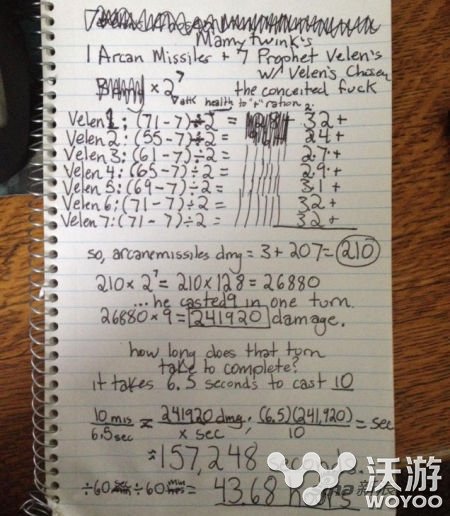 Mamytwink's
1 Arcan Missiles + 7 Prophet Velen's
w/ Velen's Chosen
× 2⁷ the conceited fuck
atk health to "+" ration
Velen 1: (71-7)÷2 = 32+
Velen 2: (55-7)÷2 = 24+
Velen 3: (61-7)÷2 = 27+
Velen 4: (65-7)÷2 = 29+
Velen 5: (69-7)÷2 = 31+
Velen 6: (71-7)÷2 = 32+
Velen 7: (71-7)÷2 = 32+
so, arcanemissiles dmg = 3 + 207 = 210
210 × 2⁷ = 210 × 128 = 26880
...he casted 9 in one turn.
26880 × 9 = 241920 damage.
how long does that turn
take to complete?
it takes 6.5 seconds to cast 10
10 mis / 6.5 sec = 241920 dmg / x sec ; (6.5)(241,920) / 10 = sec
≈ 157,248
÷60 ÷60 = 43.68 hours
沃游
WOYOO